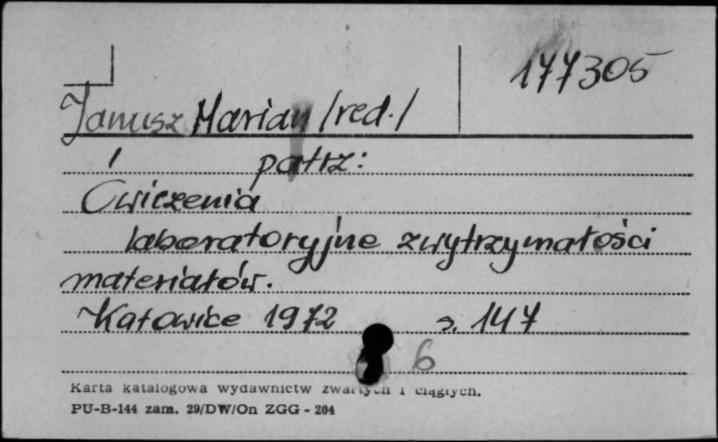 177305
Janusz Marian /red./
patrz:
Ćwiczenia
laboratoryjne z wytrzymałości
materiałów.
Katowice 1972 s. 147
6
Karta katalogowa wydawnictw zwartych i ciągłych.
PU-B-144 zam. 29/DW/On ZGG - 204